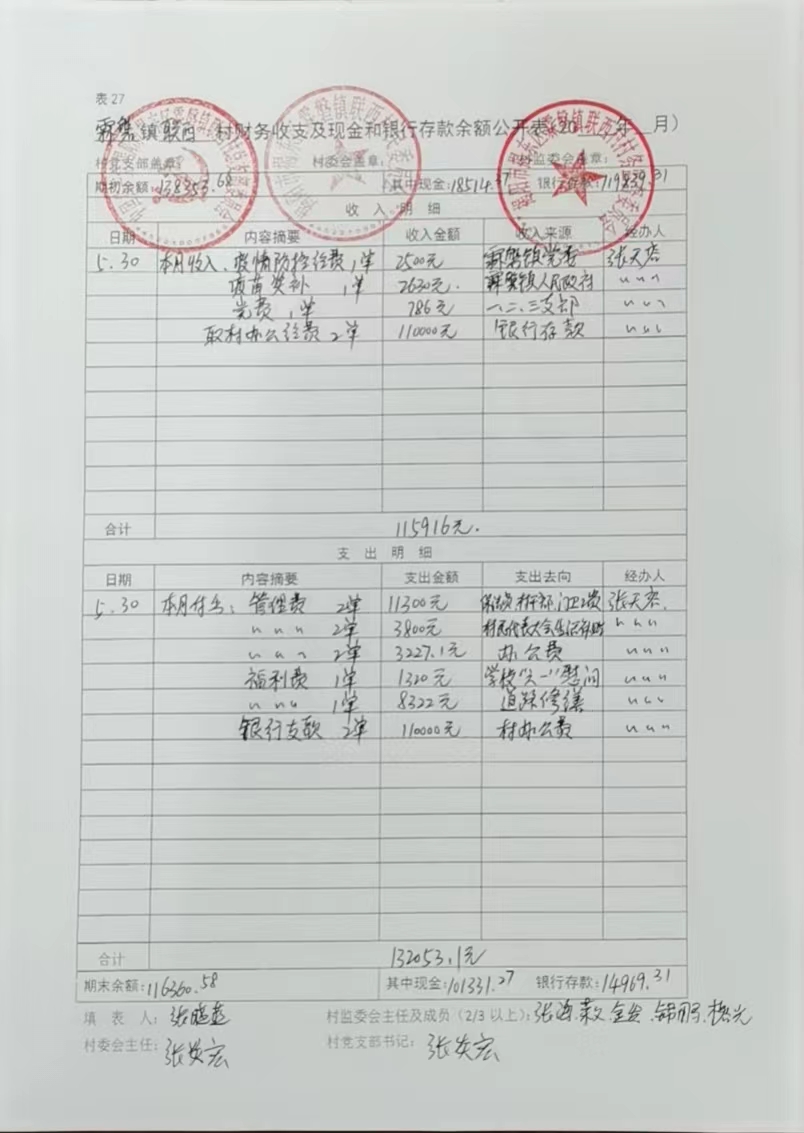 表27
霖磐镇联西村财务收支及现金和银行存款余额公开表(20 年 月)
村党支部盖章: 村委会盖章: 村监委会盖章:
期初余额: 138353.68 其中现金: 18514.37 银行存款: 119839.31
收 入 明 细
日期 内容摘要 收入金额 收入来源 经办人
5.30 本月收入、疫情防控经费,1单 2500元 霖磐镇党委 张天宏
疫苗奖补 1单 2630元. 霖磐镇人民政府 〃 〃 〃
党费,1单 786元 一、二、三支部 〃 〃 〃
取村办公经费 2单 110000元 银行存款 〃 〃 〃
合计 115916元.
支 出 明 细
日期 内容摘要 支出金额 支出去向 经办人
5.30 本月付出: 管理费 2单 11300元 张天宏.
〃 〃 〃 2单 3800元 〃 〃 〃
〃 〃 〃 2单 3227.1元 办公费 〃 〃 〃
福利费 1单 学校"六一"慰问 〃 〃 〃
〃 〃 〃 1单 8322元 道路修缮 〃 〃 〃
银行支款 2单 110000元 村办公费 〃 〃 〃
合计 132053.1元
期末余额: 116360.58 其中现金: 101331.27 银行存款: 14969.31
填 表 人: 村监委会主任及成员(2/3 以上):
村委会主任: 张炎宏 村党支部书记: 张炎宏